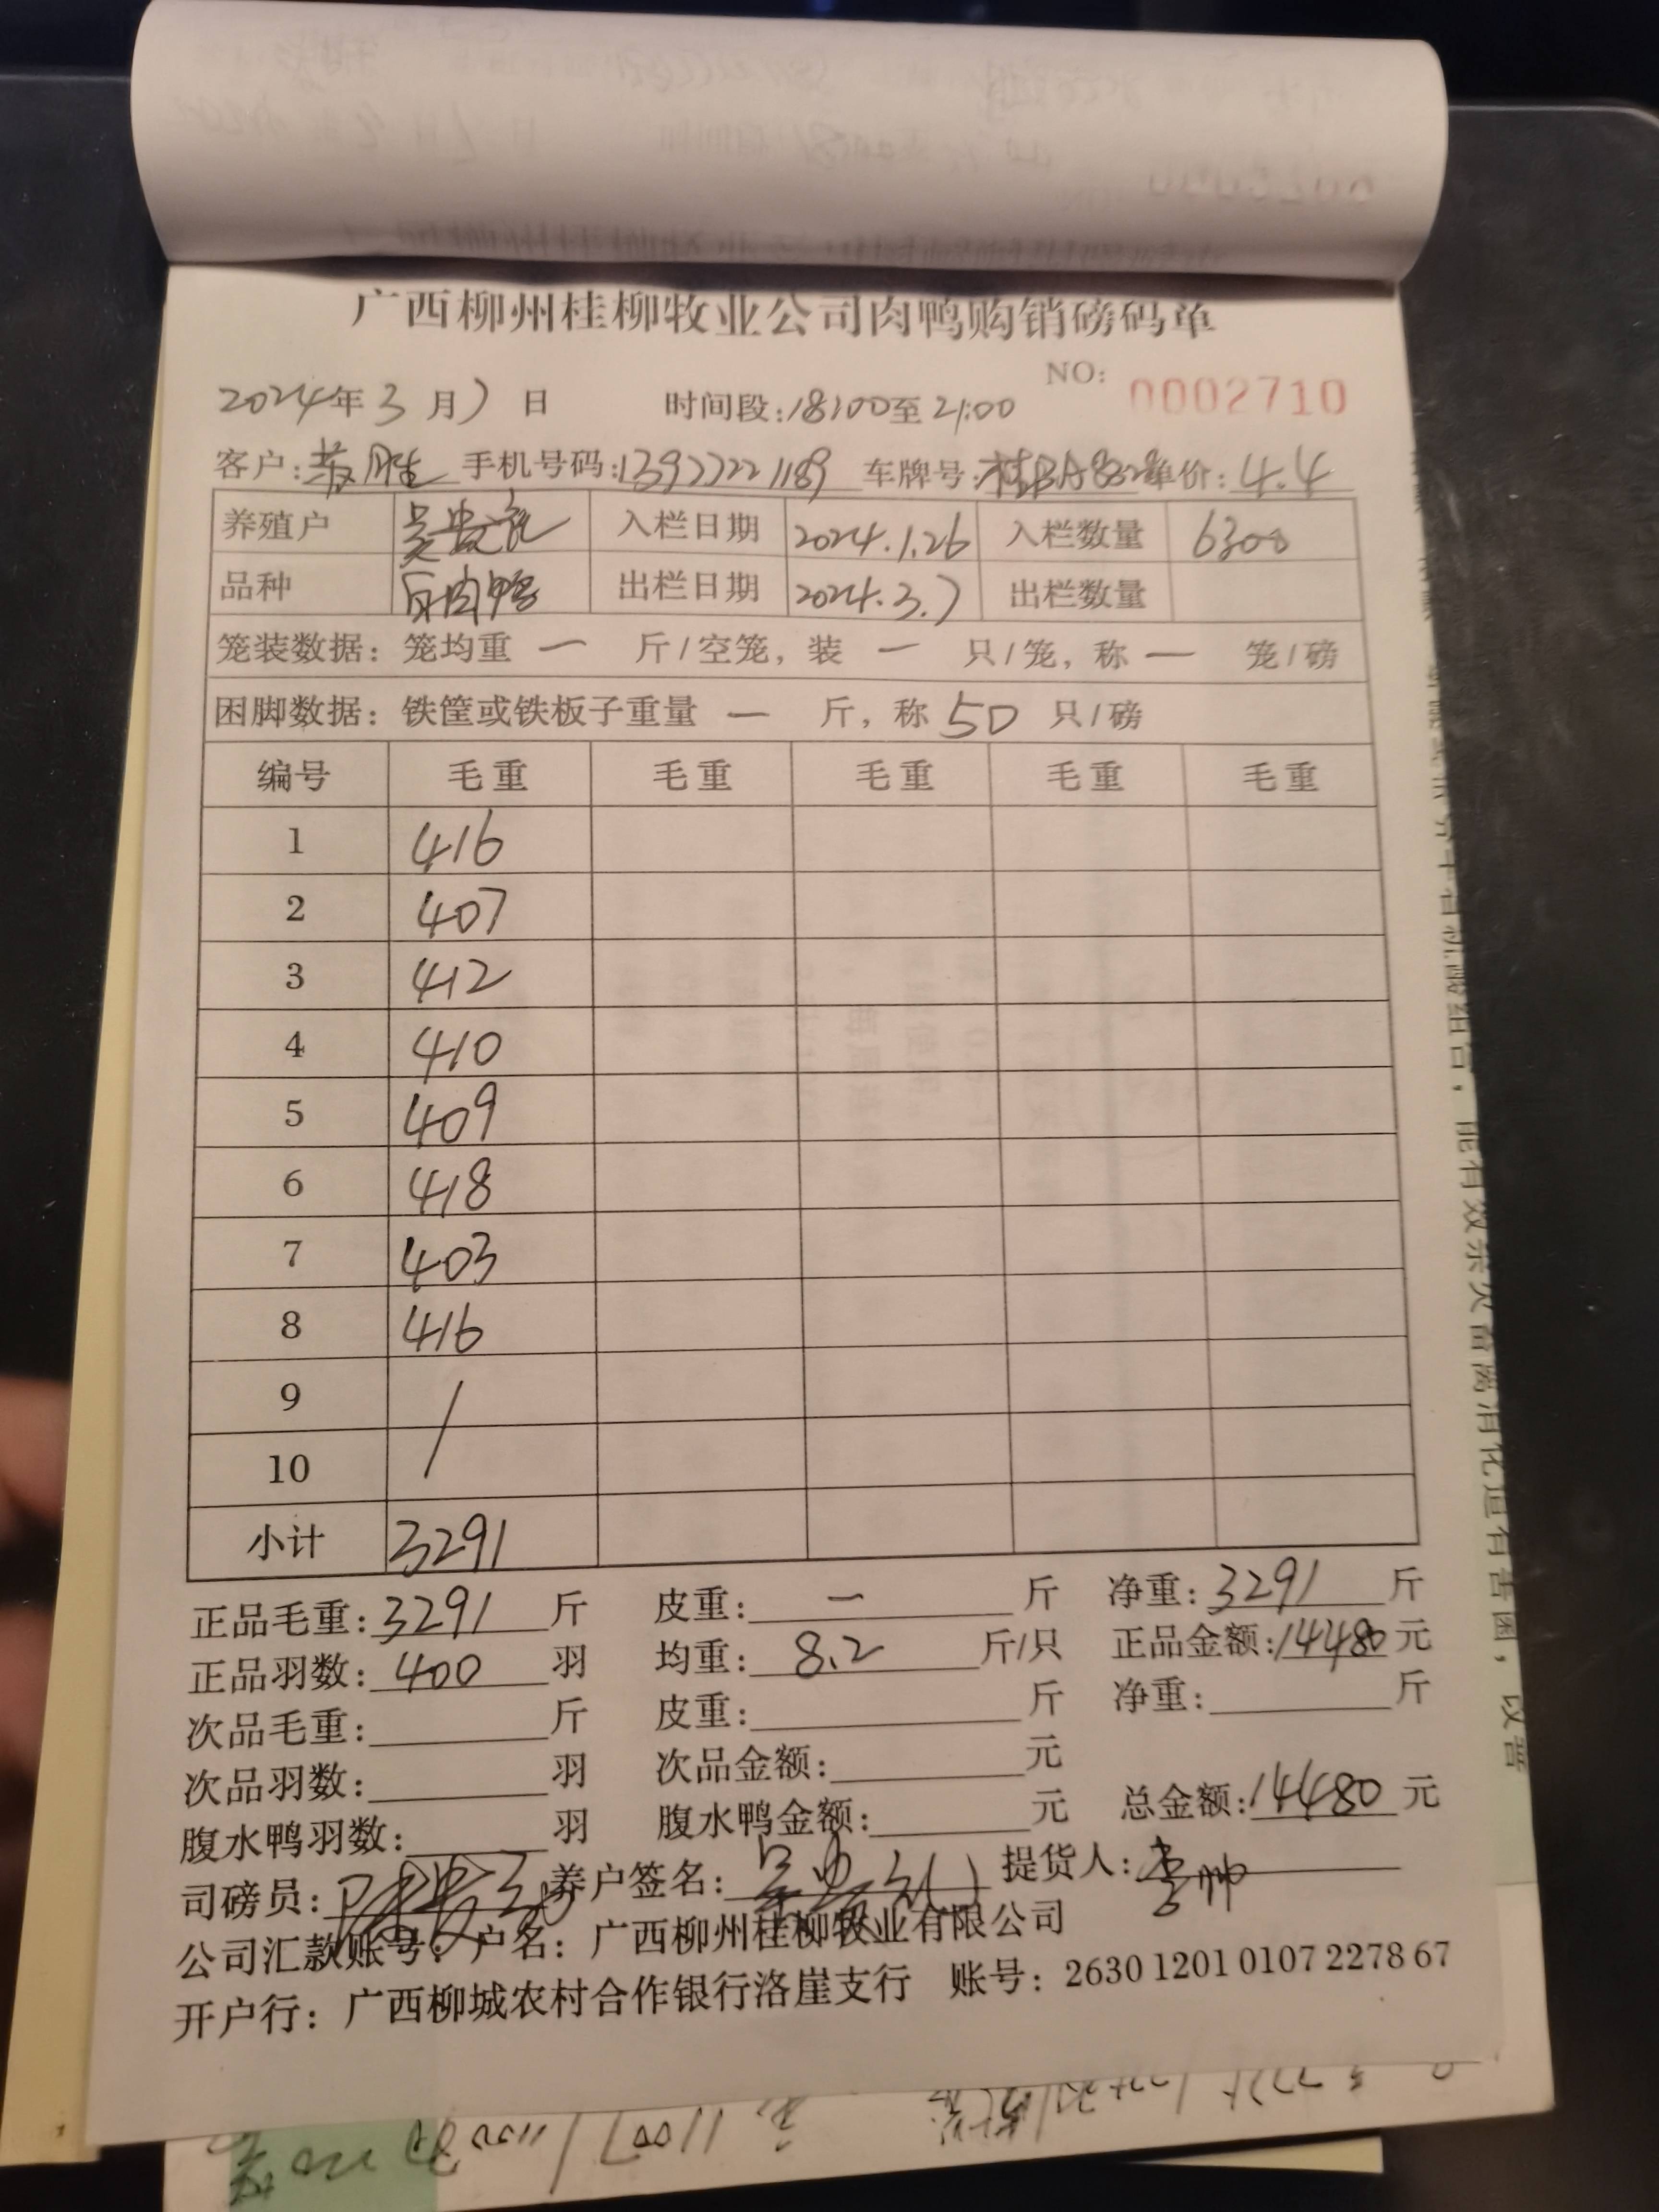 广西柳州桂柳牧业公司肉鸭购销磅码单
NO: 0002710
2024年 3 月 7 日 时间段:18:00至 21:00
客户: 胜 手机号码:13977221189 车牌号: 单价: 4.4
养殖户 吴 入栏日期 2024.1.26 入栏数量 6300
品种 白肉鸭 出栏日期 2024.3.7 出栏数量
笼装数据: 笼均重 一 斤/空笼, 装 一 只/笼, 称 一 笼/磅
困脚数据: 铁筐或铁板子重量 一 斤, 称 50 只/磅
编号 毛重 毛重 毛重 毛重 毛重
1 416
2 407
3 412
4 410
5 409
6 418
7 403
8 416
9 /
10
小计 3291
正品毛重: 3291 斤 皮重: 一 斤 净重: 3291 斤
正品羽数: 400 羽 均重: 8.2 斤/只 正品金额: 14480 元
次品毛重: 斤 皮重: 斤 净重: 斤
次品羽数: 羽 次品金额: 元
腹水鸭羽数: 羽 腹水鸭金额: 元 总金额: 14480 元
司磅员: 养户签名: 吴 提货人: 李帅
公司汇款账号: 户名: 广西柳州桂柳牧业有限公司
开户行: 广西柳城农村合作银行洛崖支行 账号: 2630 1201 0107 2278 67